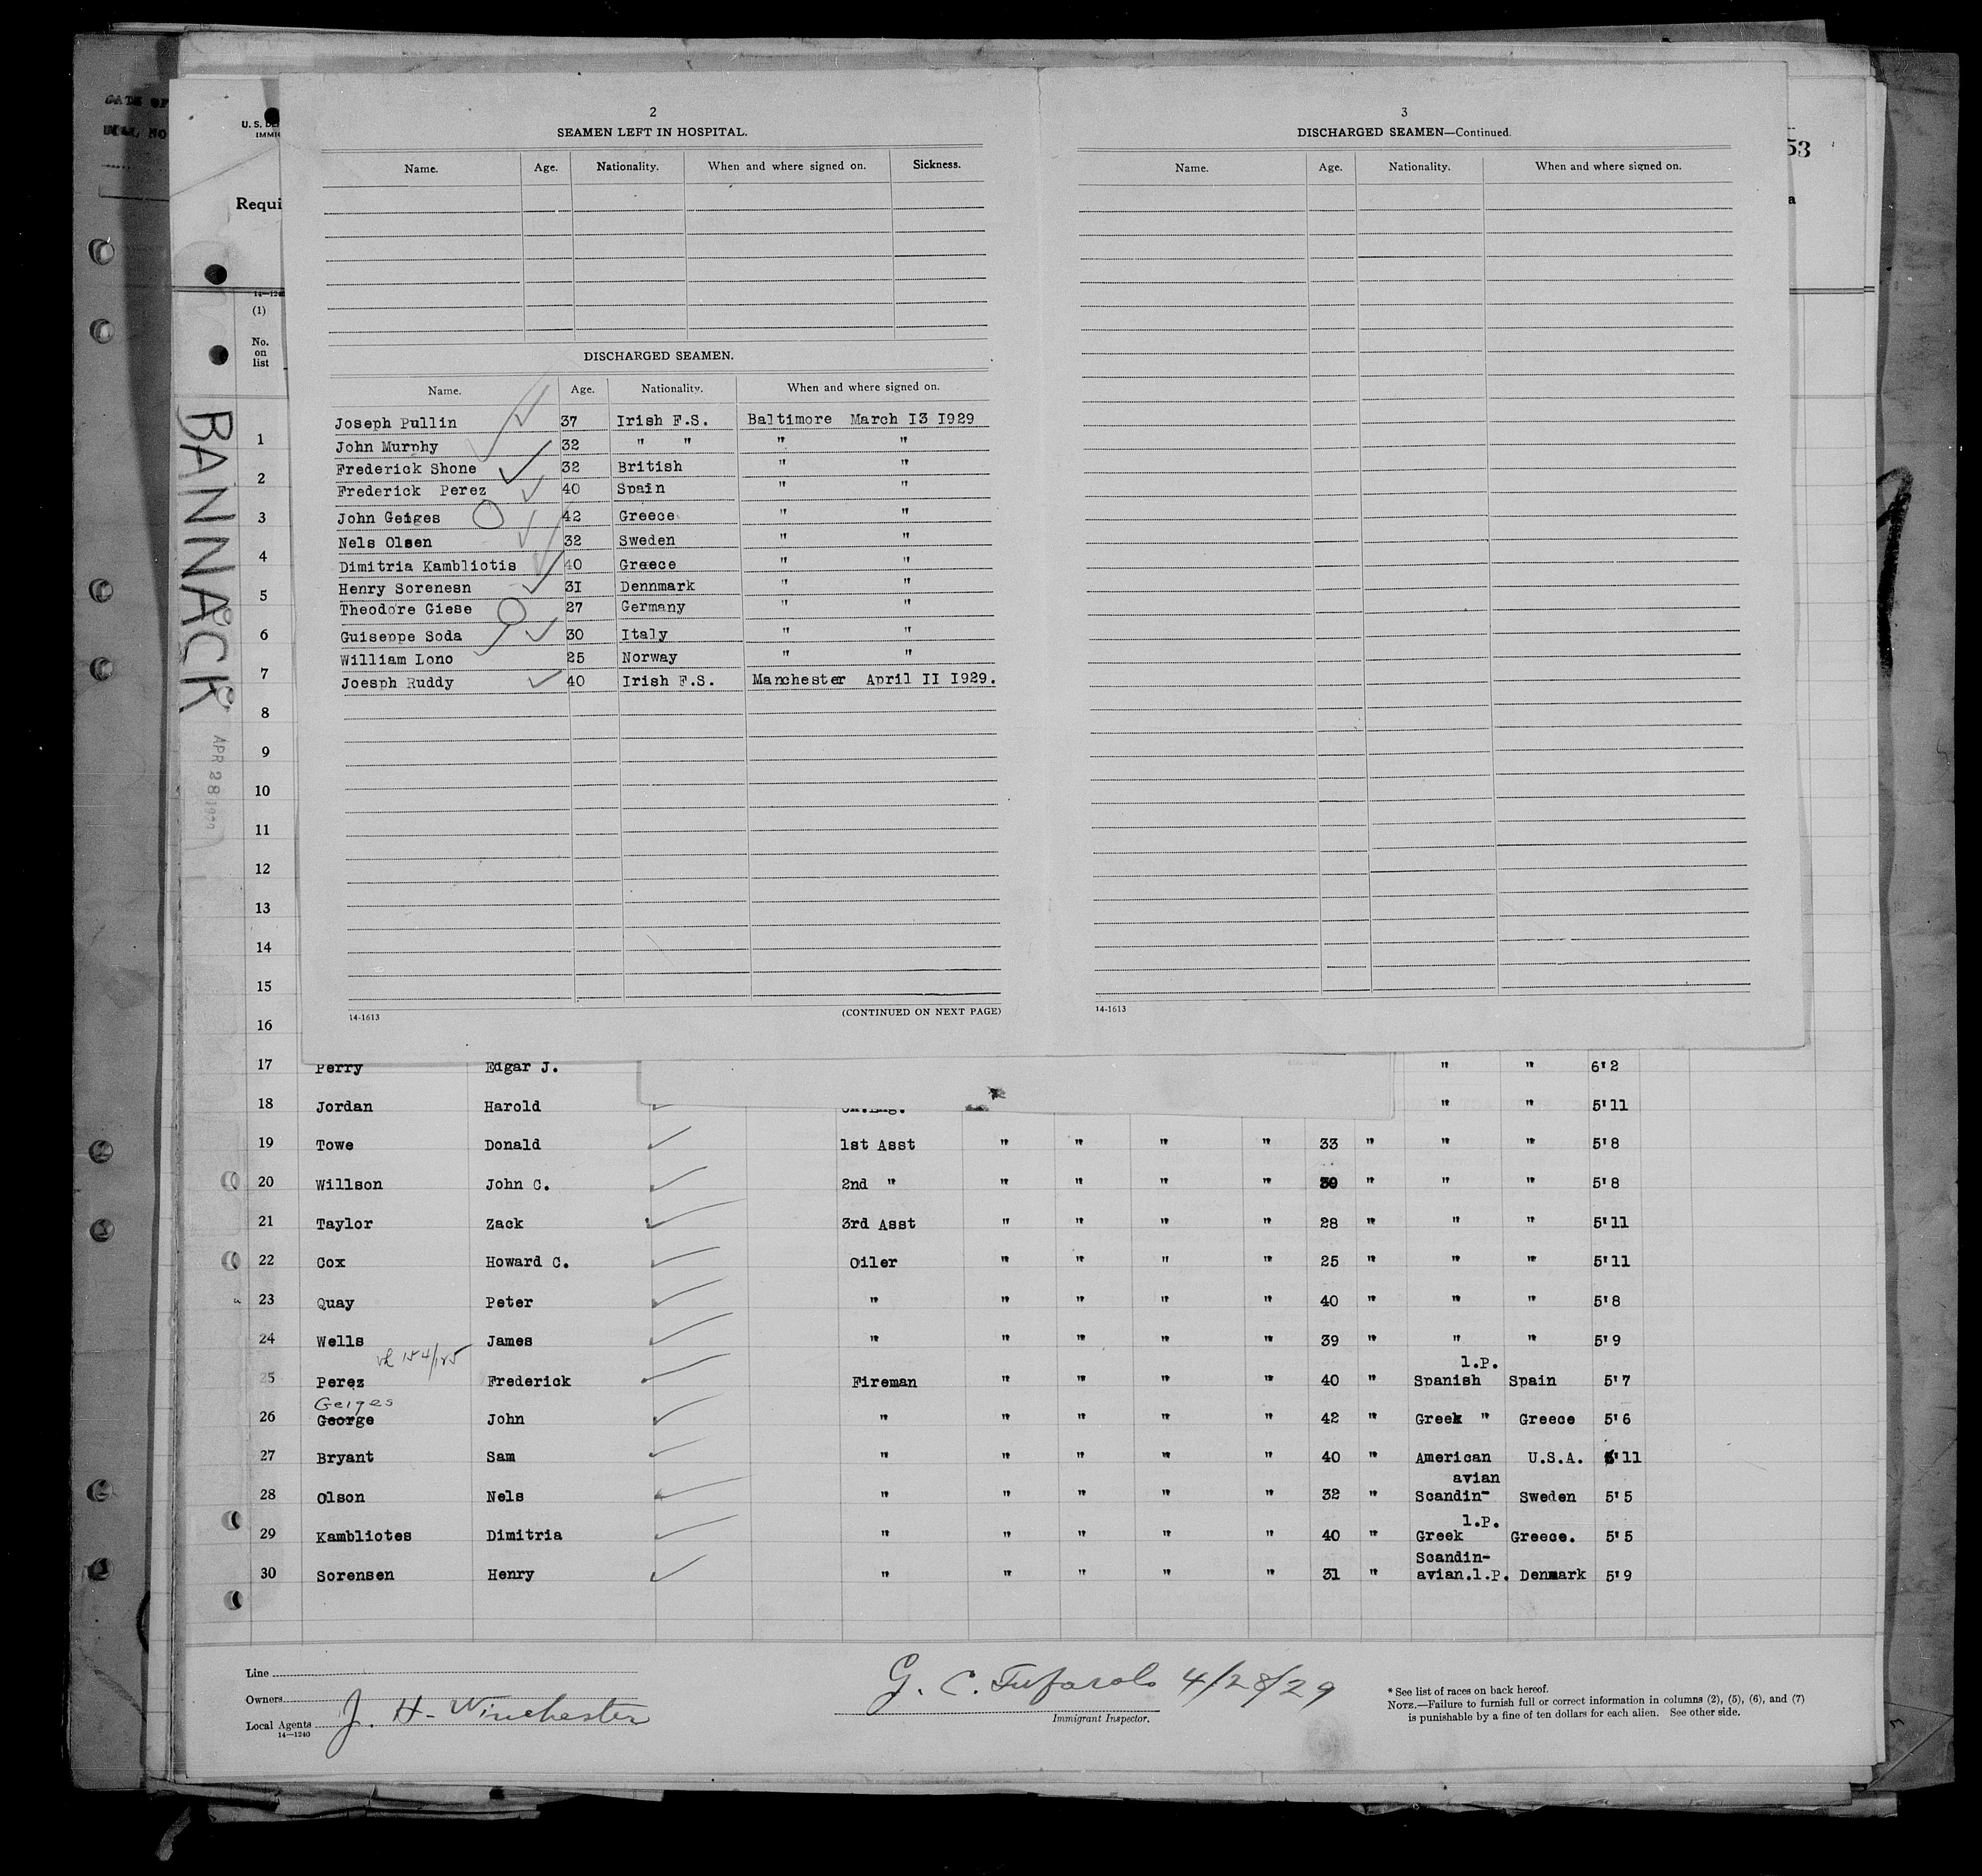 2
SEAMEN LEFT IN HOSPITAL.
Name. Age. Nationality. When and where signed on. Sickness.
DISCHARGED SEAMEN.
Name. Age. Nationality. When and where signed on.
Joseph Pullin 37 Irish F.S. Baltimore March I3 I929
John Murphy 32 " " " "
Frederick Shone 32 British " "
Frederick Perez 40 Spain " "
John Geiges 42 Greece " "
Nels Olsen 32 Sweden " "
Dimitria Kambliotis 40 Greece " "
Henry Sorenesn 3I Dennmark " "
Theodore Giese 27 Germany " "
Guiseppe Soda 30 Italy " "
William Lono 25 Norway " "
Joesph Ruddy 40 Irish F.S. Manchester April II I929.
14-1613 (CONTINUED ON NEXT PAGE)
3
DISCHARGED SEAMEN—Continued.
Name. Age. Nationality. When and where signed on.
14-1613
53
U. S. DE
IMMIG
Requi
a
(1)
No.
on
list
BANNACK
APR 28 1929
1
2
3
4
5
6
7
8
9
10
11
12
13
14
15
16
17 Perry Edgar J. " " 6'2
18 Jordan Harold " " 5'11
19 Towe Donald 1st Asst " " " " 33 " " " 5'8
20 Willson John C. 2nd " " " " " 39 " " " 5'8
21 Taylor Zack 3rd Asst " " " " 28 " " " 5'11
22 Cox Howard C. Oiler " " " " 25 " " " 5'11
23 Quay Peter " " " " " 40 " " " 5'8
24 Wells James " " " " " 39 " " " 5'9
l.P.
25 Perez Frederick Fireman " " " " 40 " Spanish Spain 5'7
Geiges
26 George John " " " " " 42 " Greek " Greece 5'6
27 Bryant Sam " " " " " 40 " American U.S.A. 5'11
avian
28 Olson Nels " " " " " 32 " Scandin- Sweden 5'5
l.P.
29 Kambliotes Dimitria " " " " " 40 " Greek Greece. 5'5
Scandin-
30 Sorensen Henry " " " " " 31 " avian.l.P. Denmark 5'9
Line
Owners
Local Agents J. H. Winchester
14—1240
G. C. 4/28/29
Immigrant Inspector.
* See list of races on back hereof.
NOTE.—Failure to furnish full or correct information in columns (2), (5), (6), and (7)
is punishable by a fine of ten dollars for each alien. See other side.